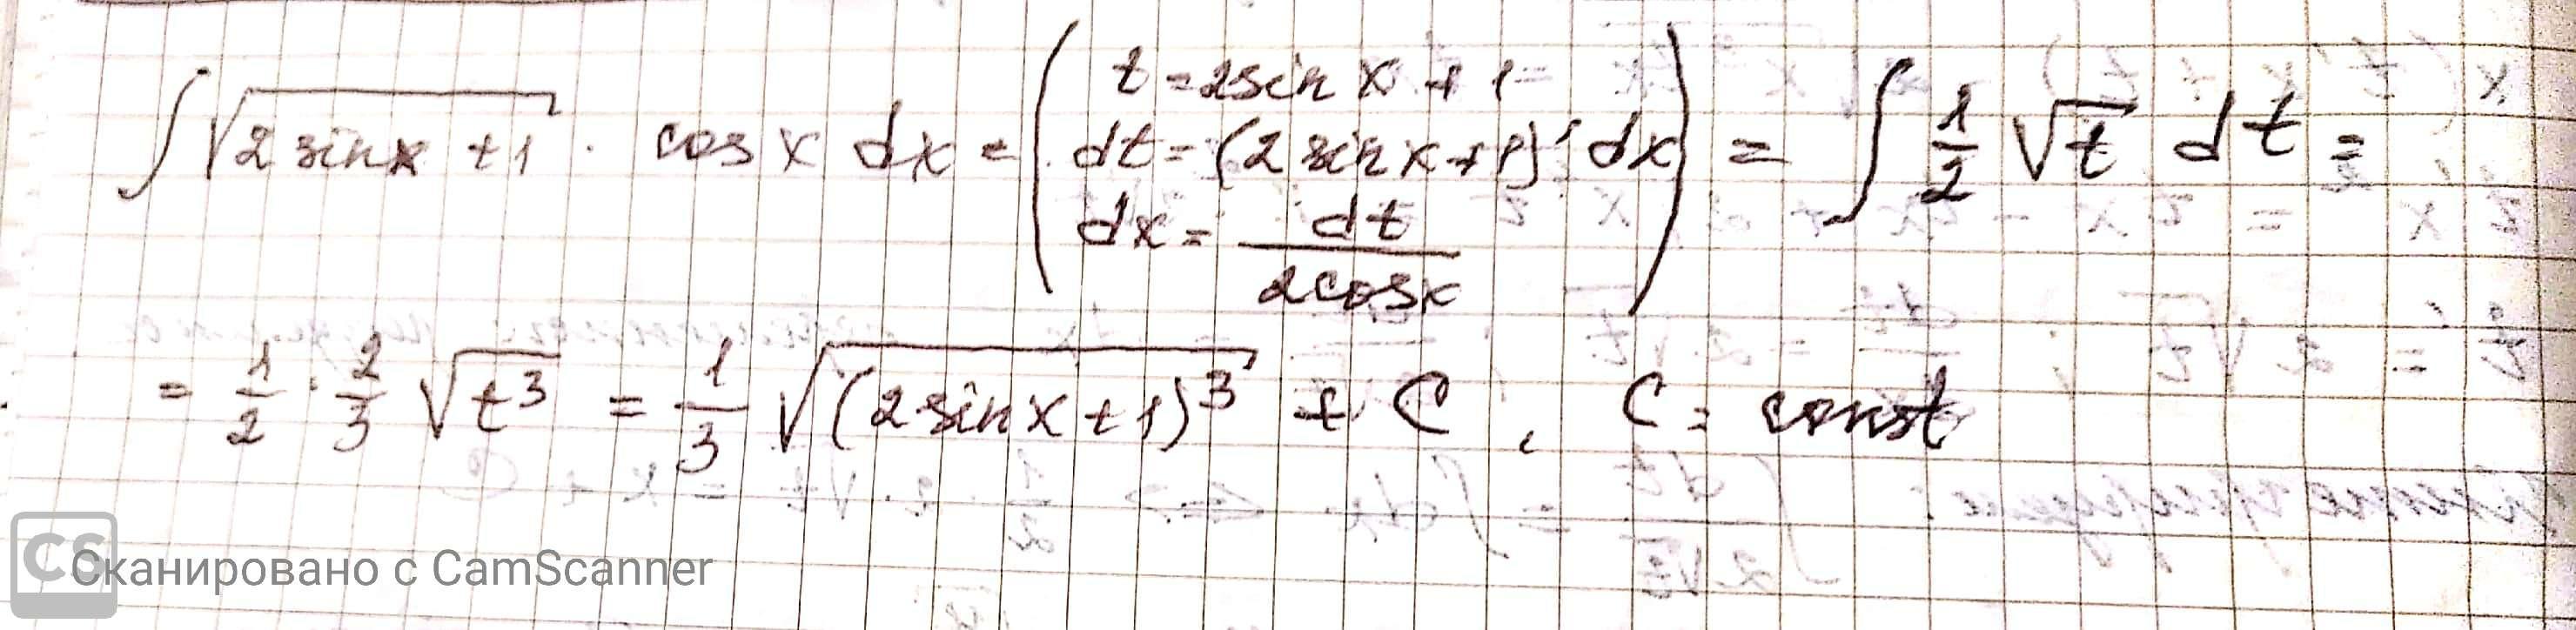 ∫√(2sinx+1) · cosx dx = (t=2sinx+1 dt=(2sinx+1)'dx dx=dt/(2cosx)) = ∫ 1/2 √t dt =
= 1/2 · 2/3 √(t³) = 1/3 √((2sinx+1)³) + C, C = const
CS Сканировано с CamScanner